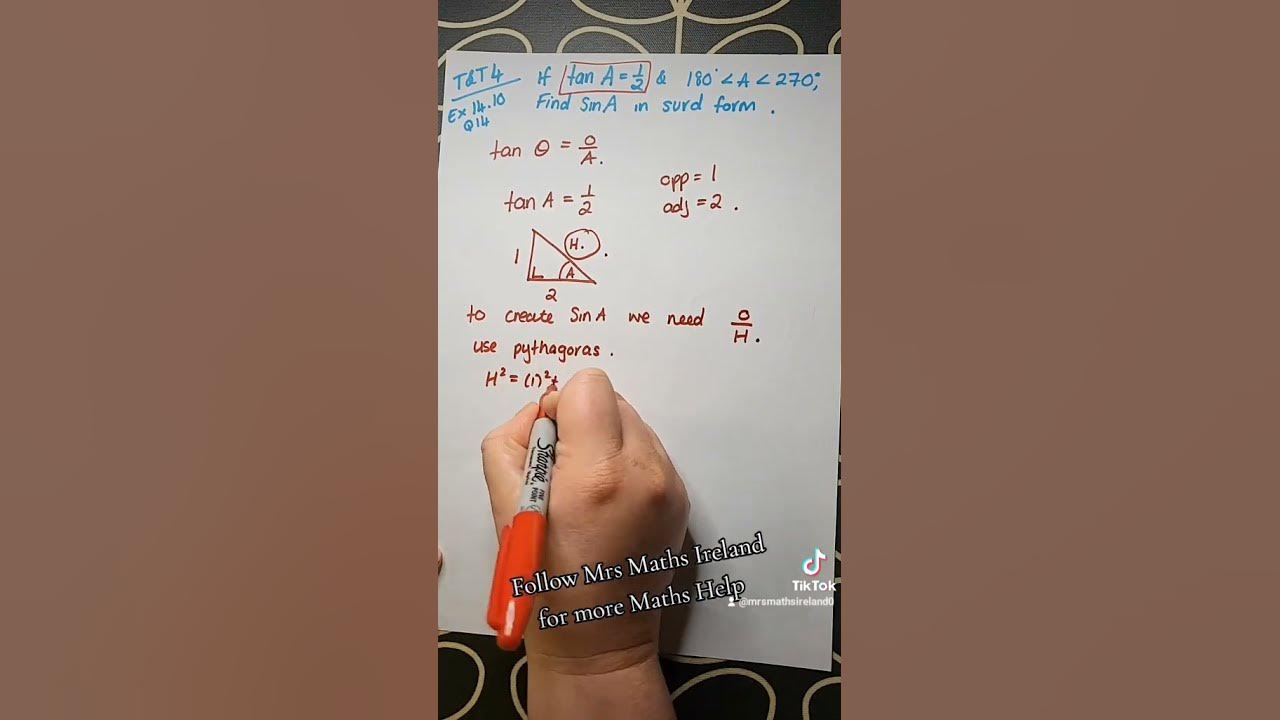 T&T4 If tan A = 1/2 & 180° < A < 270°,
Ex 14.10 Find Sin A in surd form.
Q14
tan θ = O/A.
opp = 1
tan A = 1/2 adj = 2.
1 H.
A
2
to create Sin A we need O/H.
use pythagoras.
H² = (1)² +
Sharpie
FINE
POINT
Follow Mrs Maths Ireland
for more Maths Help
TikTok
@mrsmathsireland0